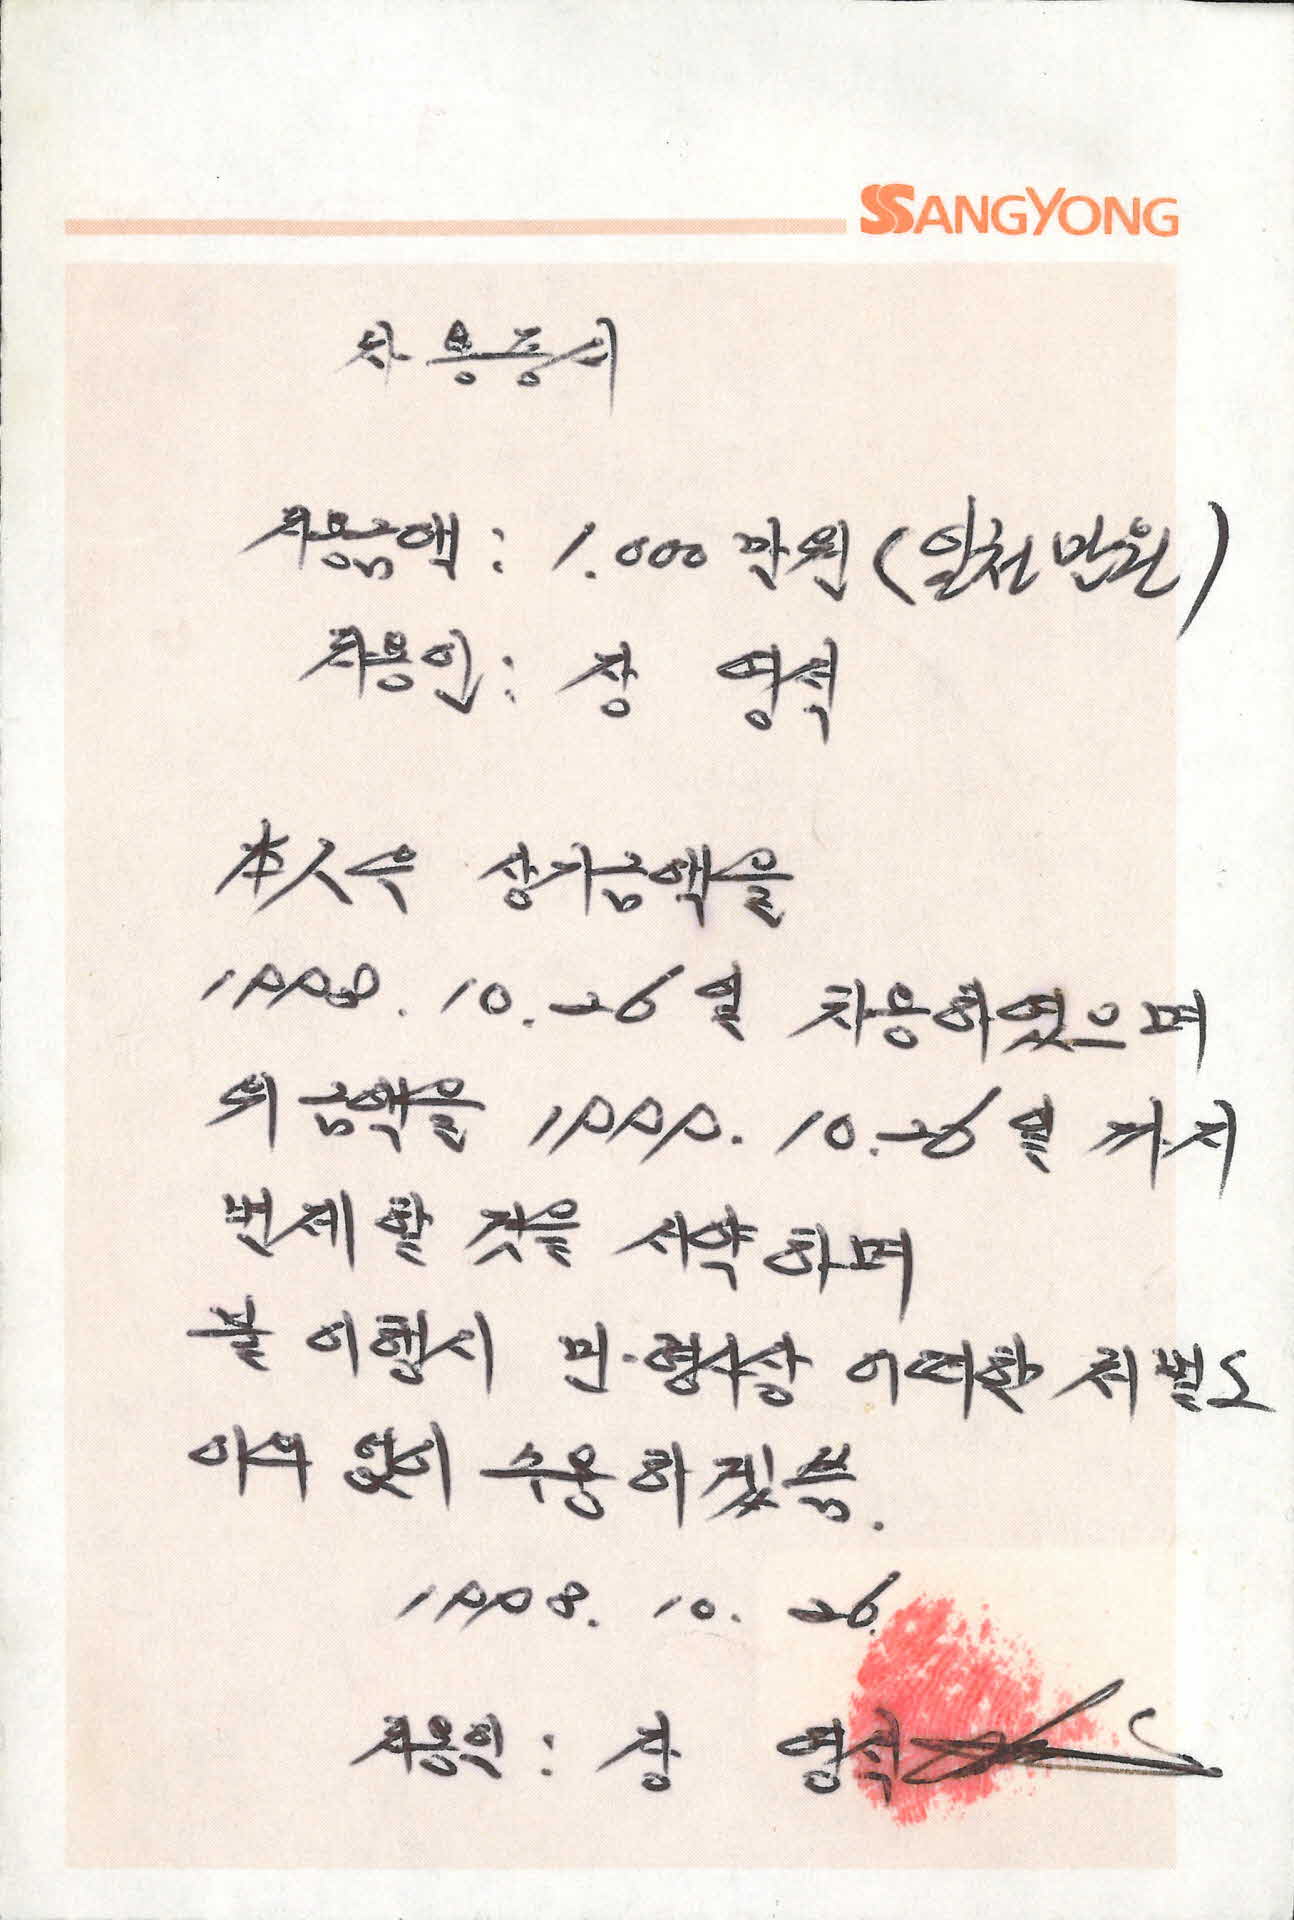 SSANGYONG
차용증서
차용금액 : 1.000 만원 (일천만원)
차용인 : 장 영석
本人은 상기금액을
1998. 10. 26일 차용하였으며
위 금액을 1999. 10. 26일 까지
변제할 것을 서약하며
불이행시 민.형사상 어떠한 처벌도
이의 없이 수용하겠슴.
1998. 10. 26.
차용인 : 장 영석